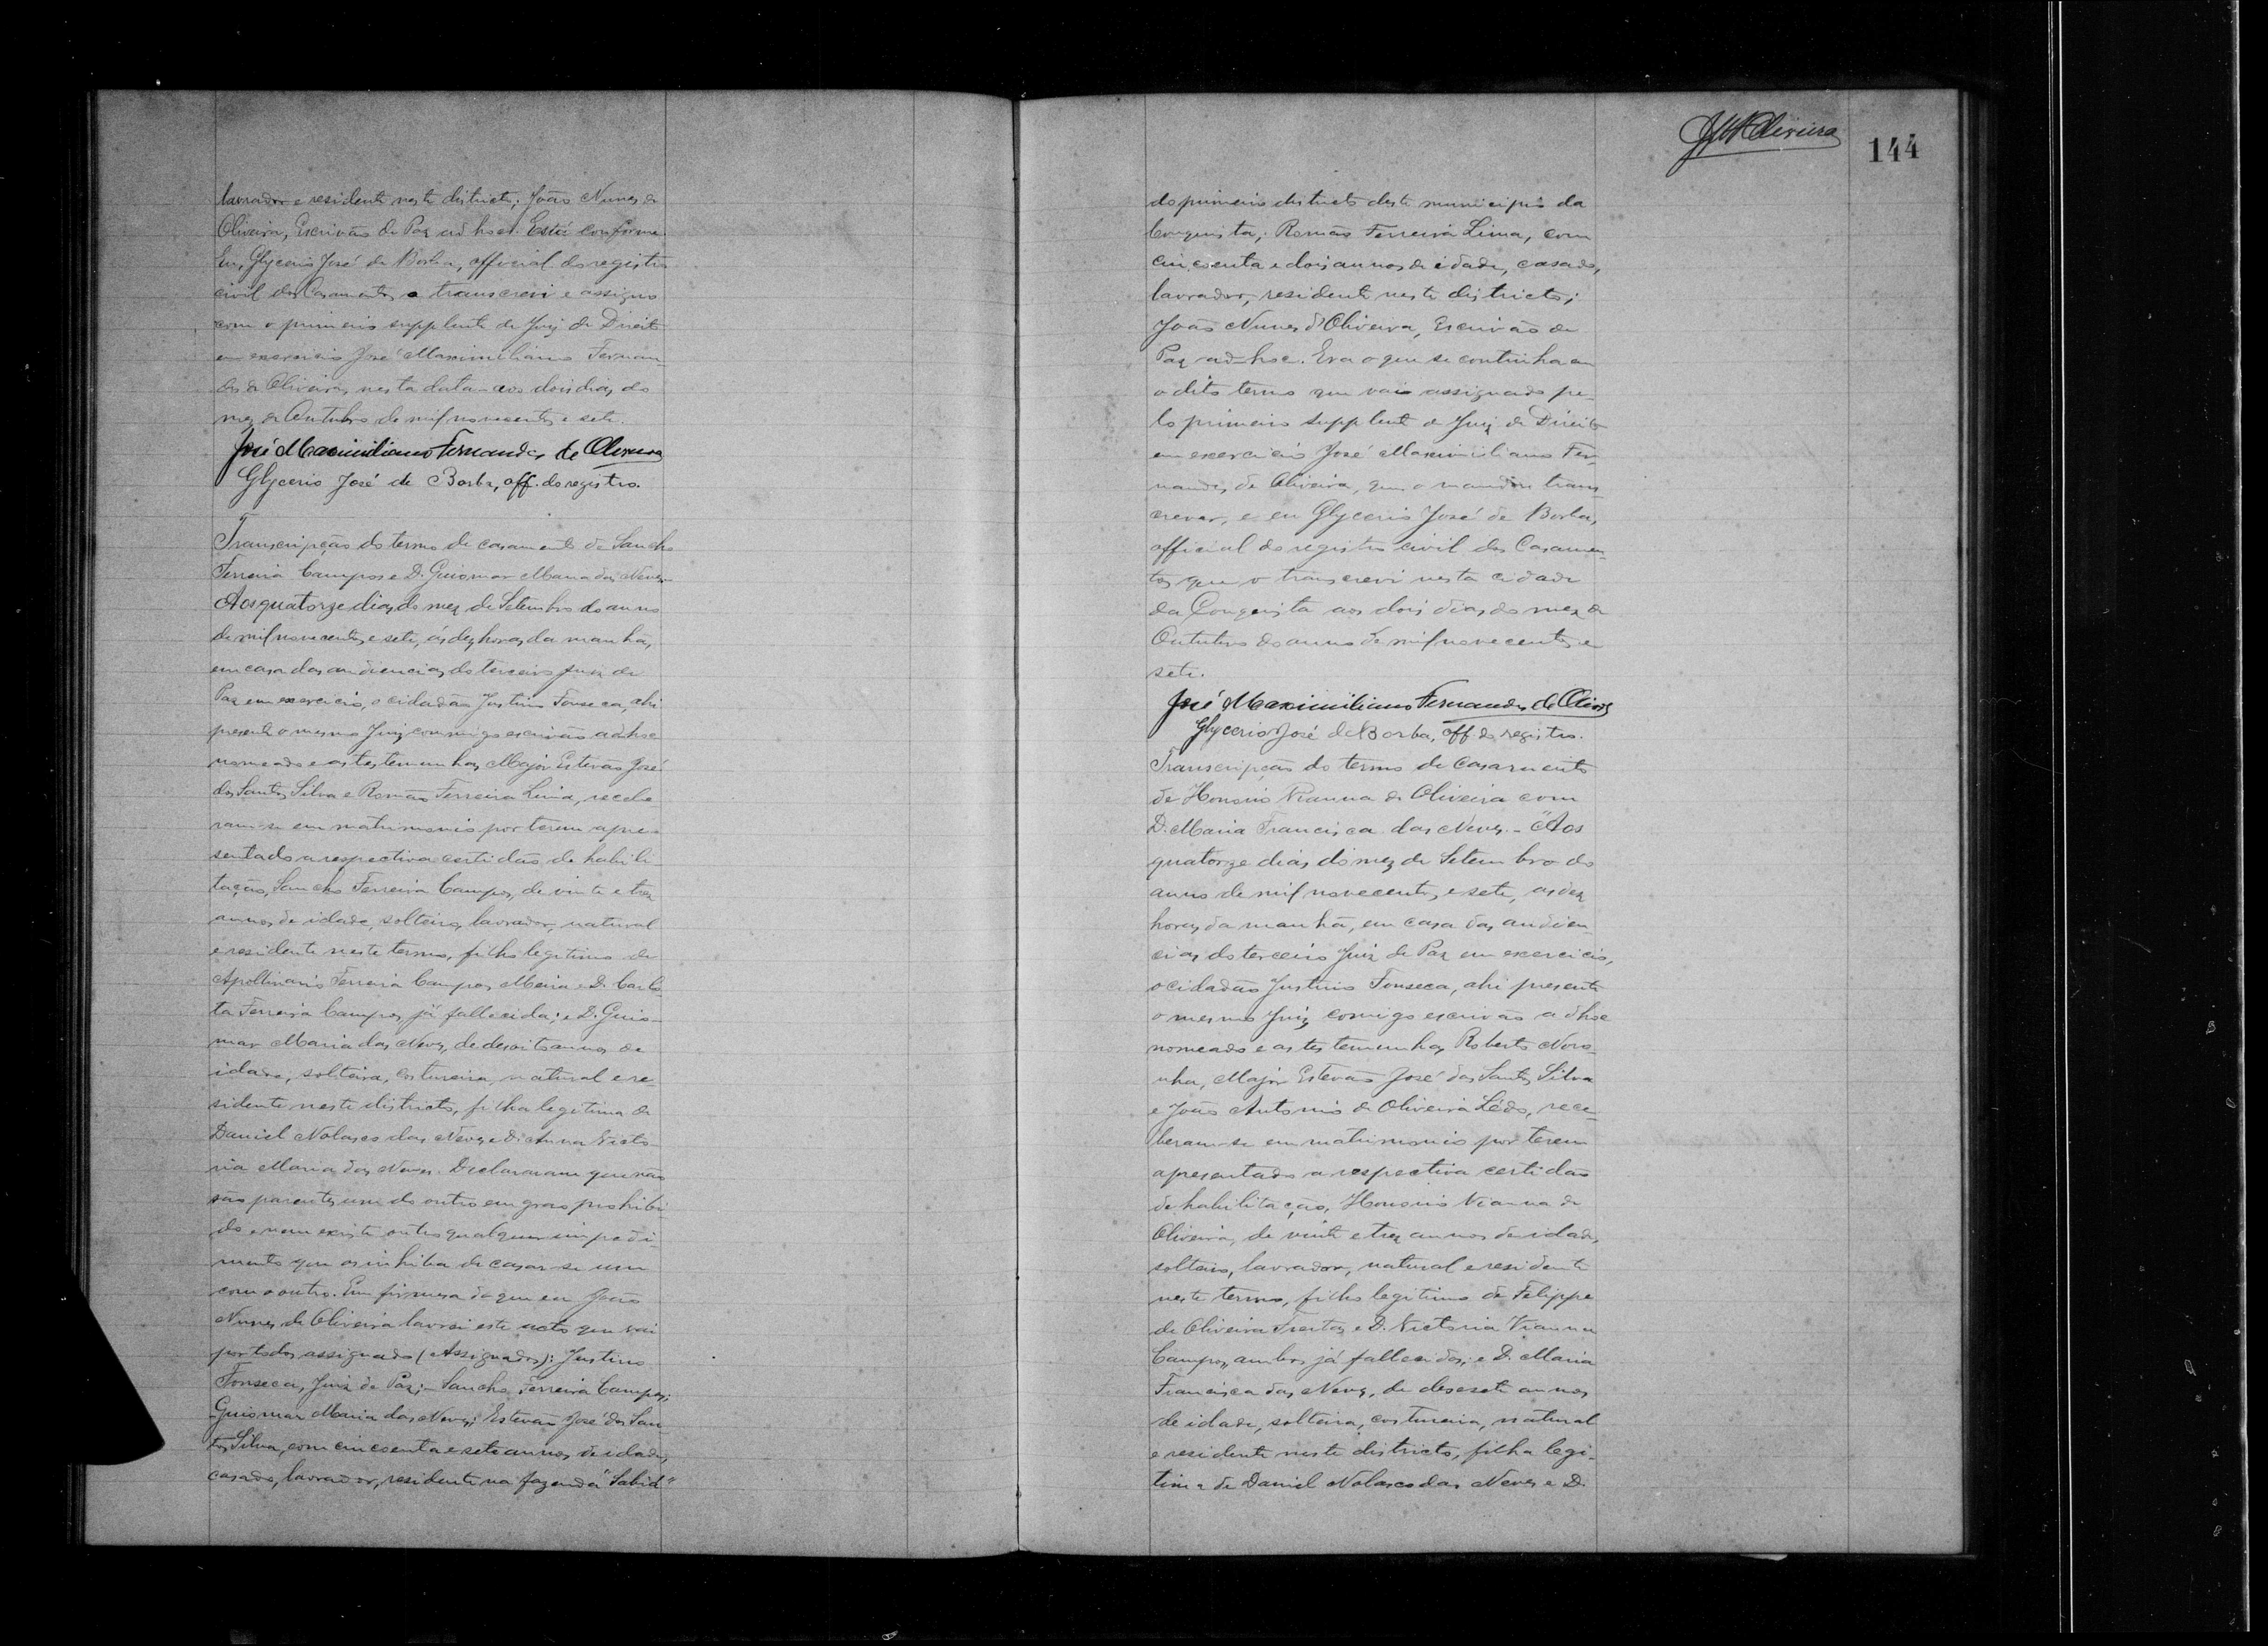 lavrador e residente neste districto; João Nunes de
Oliveira, Escrivão de Paz ad hoc. Está conforme.
Eu, Glycerio José de Borba, official do registro
civil dos Casamentos, o transcrevi e assigno
com o primeiro supplente de Juiz de Direito
em exercicio José Maximiliano Fernan-
des de Oliveira, nesta data aos dois dias do
mez de Outubro de mil novecentos e sete.
José Maximiliano Fernandes de Oliveira
Glycerio José de Borba, off. do registro.
Transcripção do termo de casamento de Sancho
Ferreira Campos e D. Guiomar Maria das Neves.
Aos quatorze dias do mez de Setembro do anno
de mil novecentos e sete, ás dez horas da manhã,
em casa das audiencias do terceiro Juiz de
Paz em exercicio, o cidadão Justino Fonseca, ahi
presente o mesmo Juiz commigo escrivão ad hoc
nomeado e as testemunhas Major Estevão José
dos Santos Silva e Romão Ferreira Lima, recebe
ram-se em matrimonio por terem apre-
sentado a respectiva certidão de habili-
tação, Sancho Ferreira Campos, de vinte e trez
annos de idade, solteiro, lavrador, natural
e residente neste termo, filho legitimo de
Apollinario Ferreira Campos Meira e D. Carlo-
ta Ferreira Campos, já fallecida; e D. Guio-
mar Maria das Neves, de desoito annos de
idade, solteira, costureira, natural e re-
sidente neste districto, filha legitima de
Daniel Nolasco das Neves e D. Anna Victo-
ria Maria das Neves. Declararam que não
são parentes um do outro em grao prohibi-
do e nem existe outro qualquer impedi-
mento que os inhiba de casar-se um
com o outro. Em firmesa do que eu João
Nunes de Oliveira lavrei este acto que vai
por todos assignado (Assignados): Justino
Fonseca, Juiz de Paz; Sancho Ferreira Campos;
Guiomar Maria das Neves; Estevam José dos San-
tos Silva, com cincoenta e sete annos de idade,
casado, lavrador, residente na fazenda "Sabiá"
JMFOliveira
144
do primeiro districto deste municipio da
Conquista; Romão Ferreira Lima, com
cincoenta e dois annos de idade, casado,
lavrador, residente neste districto;
João Nunes d'Oliveira, Escrivão de
Paz ad-hoc. Era o que se continha em
o dito termo que vai assignado pe-
lo primeiro supplente de Juiz de Direito
em exercicio José Maximiliano Fer-
nandes de Oliveira, que o mandou trans-
crever, e eu Glycerio José de Borba,
official do registro civil dos Casamen-
tos que o transcrevi nesta cidade
da Conquista aos dois dias do mez de
Outubro do anno de mil novecentos e
sete.
José Maximiliano Fernandes de Oliveira
Glycerio José de Borba, off. do registro.
Transcripção do termo de Casamento
de Honorio Vianna de Oliveira com
D. Maria Francisca das Neves. - "Aos
quatorze dias do mez de Setembro do
anno de mil novecentos e sete, as dez
horas da manhã, em casa das audien-
cias do terceiro Juiz de Paz em exercicio,
o cidadão Justino Fonseca, ahi presente
o mesmo Juiz comigo escrivão ad hoc
nomeado e as testemunhas Roberto Noro-
nha, Major Estevão José dos Santos Silva
e João Antonio de Oliveira Lédo, rece-
beram-se em matrimonio por terem
apresentado a respectiva certidão
de habilitação, Honorio Vianna de
Oliveira, de vinte e trez annos de idade,
solteiro, lavrador, natural e residente
neste termo, filho legitimo de Felippe
de Oliveira Freitas e D. Victoria Vianna
Campos, ambos já fallecidos; e D. Maria
Francisca das Neves, de desesete annos
de idade, solteira, costureira, natural
e residente neste districto, filha legi-
tima de Daniel Nolasco das Neves e D.